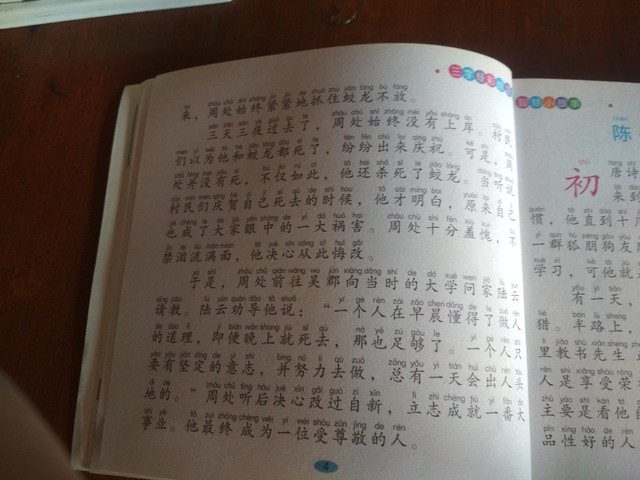 来，周处始终紧紧地抓住蛟龙不放。
三天三夜过去了，周处始终没有上岸。村民
们以为他和蛟龙都死了，纷纷出来庆祝。可是，周
处并没有死，不仅如此，他还杀死了蛟龙。当听说
村民们庆贺自己死去的时候，他才明白，原来自己
也成了大家眼中的一大祸害。周处十分羞愧，不
禁泪流满面，他决心从此悔改。
于是，周处前往吴郡向当时的大学问家陆云
请教。陆云劝导他说：“一个人在早晨懂得了做人
的道理，即便晚上就死去，那也足够了。一个人只
要有坚定的意志，并努力去做，总有一天会出人头
地的。”周处听后决心改过自新，立志成就一番大
事业。他最终成为一位受尊敬的人。
4
智慧小故事
陈
初
唐诗
来到
惯，他直到十几
一群狐朋狗友
学习，可他就
有一天，
猎。半路上，
里教书先生
人是享受荣
主要是看他
品性好的人